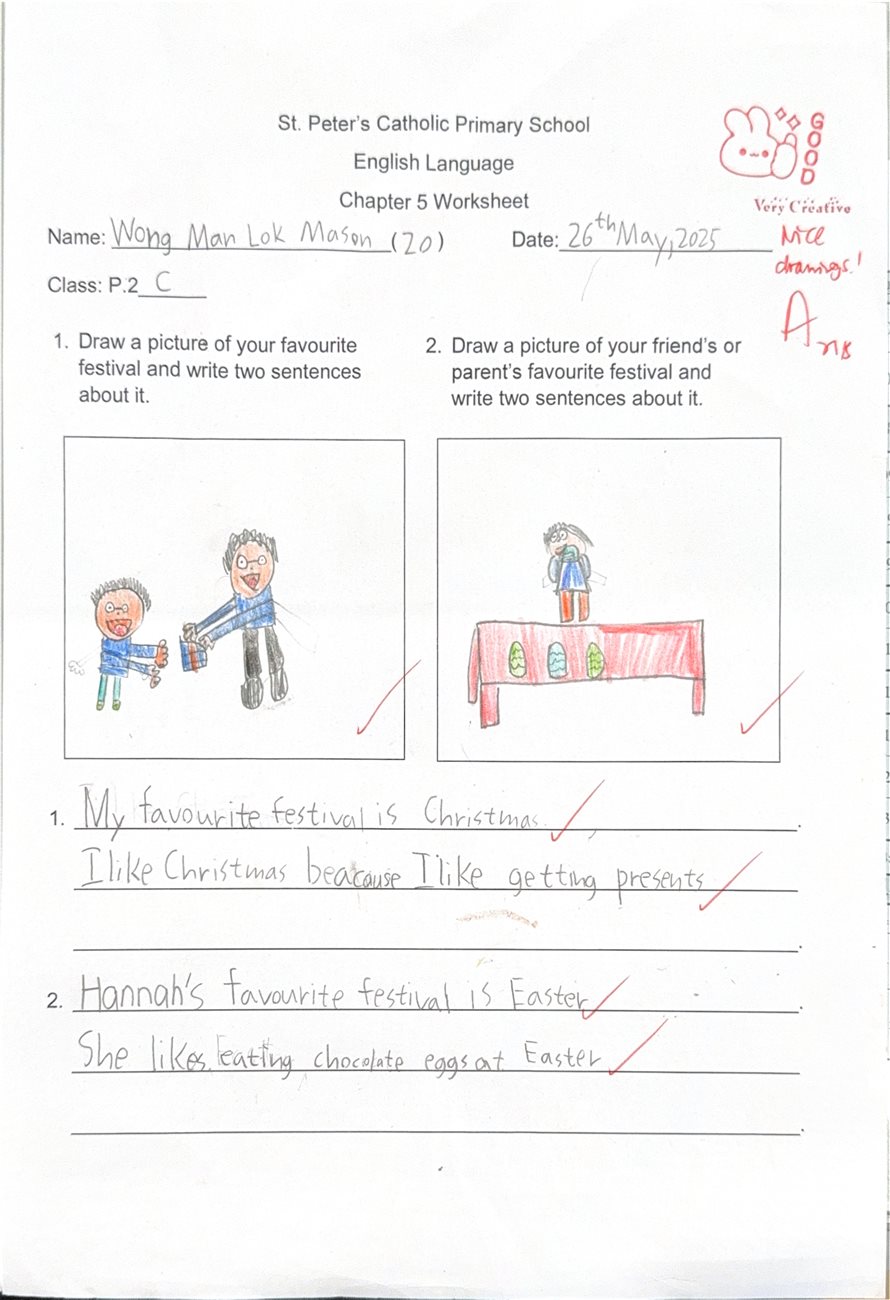 St. Peter's Catholic Primary School
English Language
Chapter 5 Worksheet
GOOD
Very Creative
Name: Wong Man Lok Mason (20)
Date: 26th May, 2025
Nice drawings!
Class: P.2 C
A
1. Draw a picture of your favourite
festival and write two sentences
about it.
2. Draw a picture of your friend's or
parent's favourite festival and
write two sentences about it.
1. My favourite festival is Christmas.
I like Christmas beacause I like getting presents.
2. Hannah's favourite festival is Easter.
She likes eating chocolate eggs at Easter.